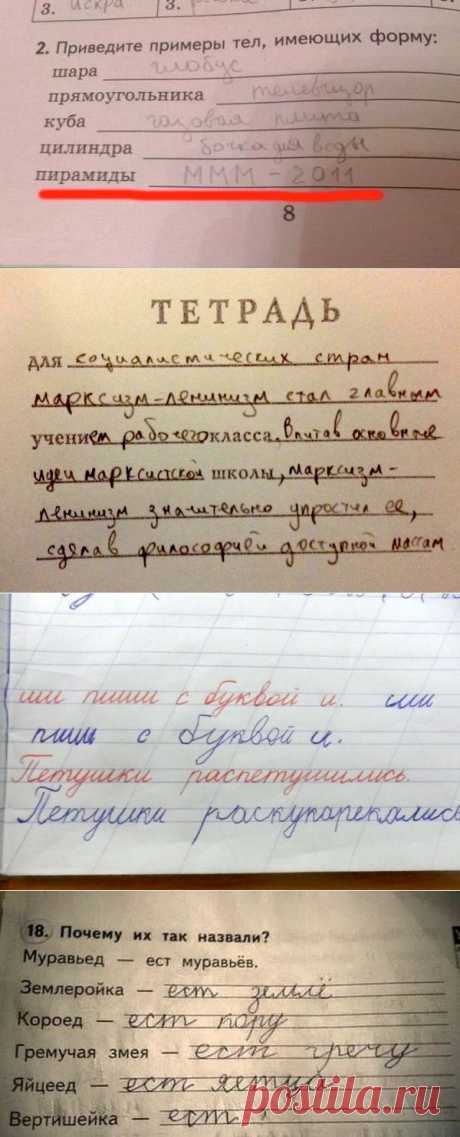 3. искра 3.
2. Приведите примеры тел, имеющих форму:
шара глобус
прямоугольника телевизор
куба газовая плита
цилиндра бочка для воды
пирамиды МММ - 2011
8
ТЕТРАДЬ
для социалистических стран
марксизм-ленинизм стал главным
учением рабочего класса. Впитав основные
идеи марксистской школы, марксизм-
ленинизм значительно упростил её,
сделав философией доступной массам
ши пиши с буквой и. ши
пиши с буквой и.
Петушки распетушились.
Петушки раскукарекались
18. Почему их так назвали?
Муравьед — ест муравьёв.
Землеройка — ест землё
Короед — ест кору
Гремучая змея — ест гречу
Яйцеед — ест яетца
Вертишейка — ест
postila.ru